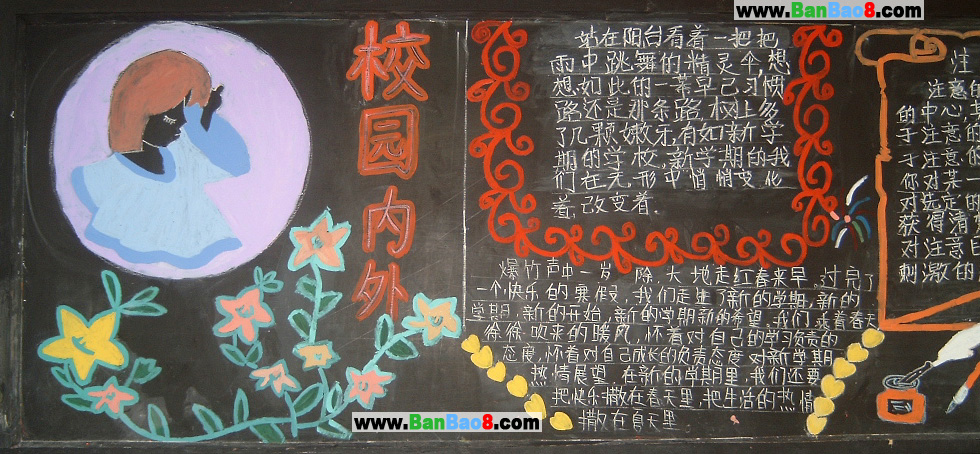 www.BanBao8.com
校园内外
站在阳台看着一把把
雨中跳舞的精灵伞,想
想如此的一幕早已习惯
路还是那条路,校上多
了几颗嫩牙,有如新学
期的学校,新学期的我
们在无形中悄悄变化
着,改变着.
爆竹声中一岁除,大地走红春来早,过完了
一个快乐的寒假,我们走进了新的学期,新的
学期,新的开始,新的学期新的希望,我们乘着春天
徐徐吹来的暖风,怀着对自己的学习负责的
态度,怀着对自己成长的负责态度对新学期
热情展望,在新的学期里,我们还要
把快乐撒在春天里,把生活的热情
撒在春天里
注
注意的
的中心,其
于注意的
于注意的
你对某一
对选定的
获得清
对注意
刺激的
www.BanBao8.com